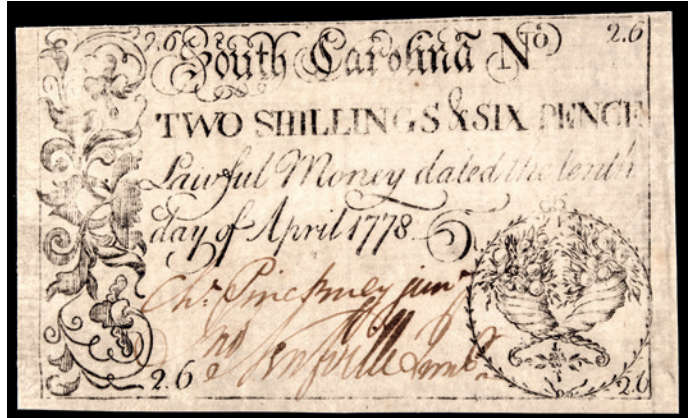 2.6 South Carolina No 2.6
TWO SHILLINGS & SIX PENCE
Lawful Money dated the tenth
day of April 1778
Chs. Pinckney junr
2.6 2.6